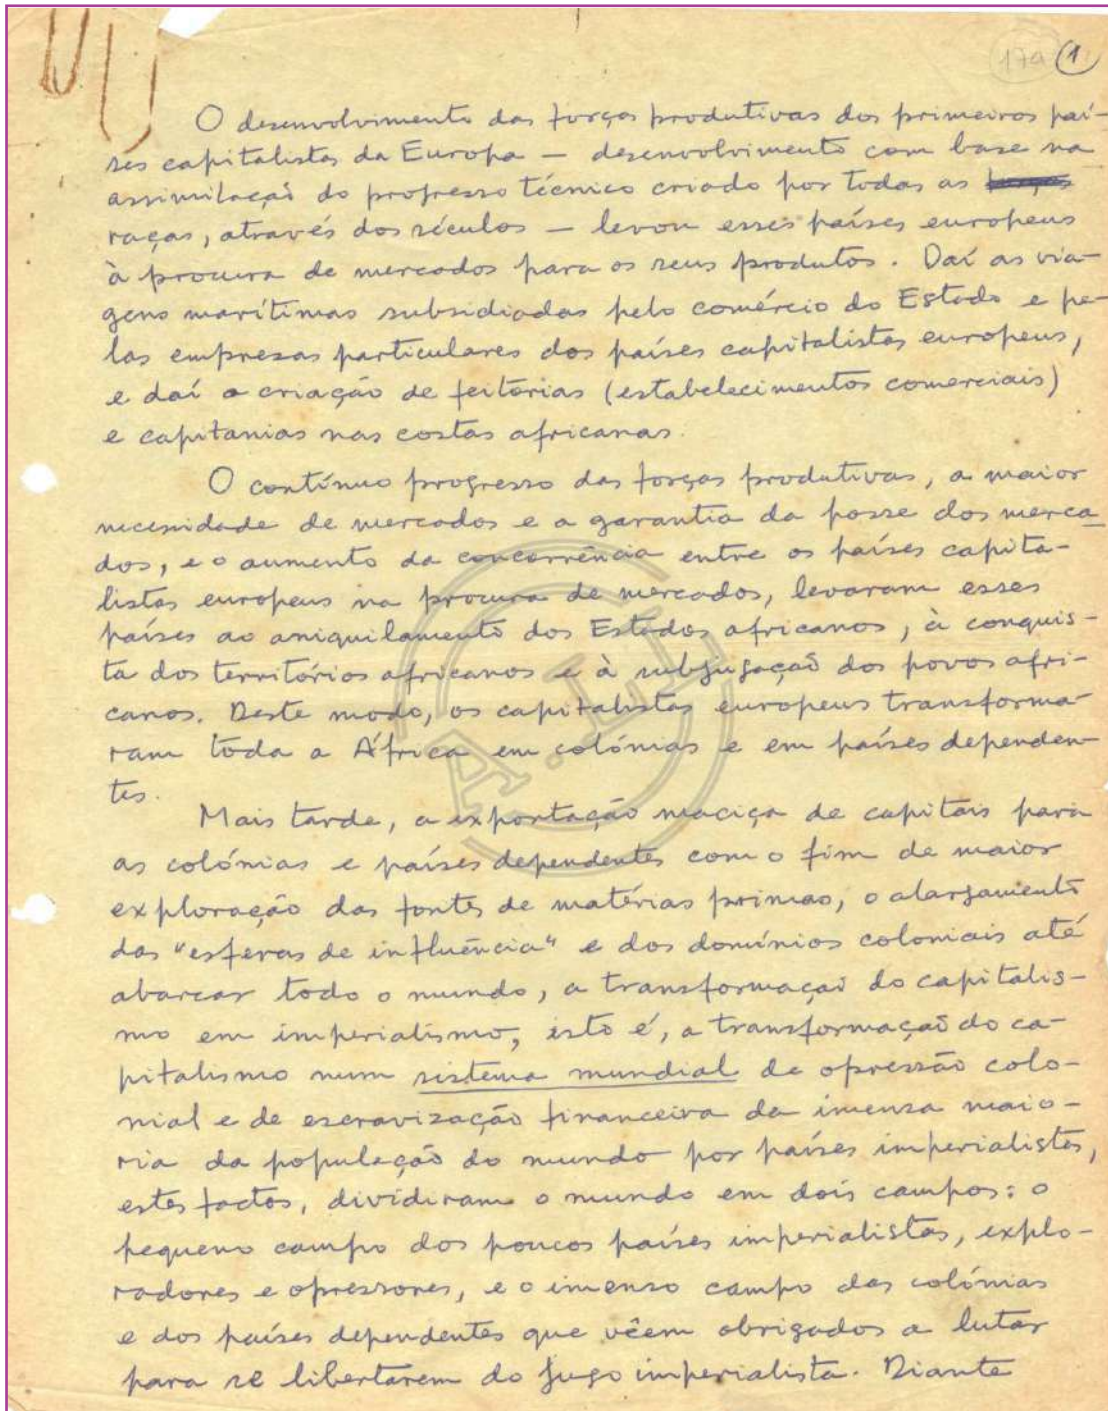 179 1
O desenvolvimento das forças produtivas dos primeiros paí-
ses capitalistas da Europa — desenvolvimento com base na
assimilação do progresso técnico criado por todas as
raças, através dos séculos — levou esses países europeus
à procura de mercados para os seus produtos. Daí as via-
gens marítimas subsidiadas pelo comércio do Estado e pe-
las empresas particulares dos países capitalistas europeus,
e daí a criação de feitorias (estabelecimentos comerciais)
e capitanias nas costas africanas.
O contínuo progresso das forças produtivas, a maior
necessidade de mercados e a garantia da posse dos merca
dos, e o aumento da concorrência entre os países capita-
listas europeus na procura de mercados, levaram esses
países ao aniquilamento dos Estados africanos, à conquis-
ta dos territórios africanos e à subjugação dos povos afri-
canos. Deste modo, os capitalistas europeus transforma-
ram toda a África em colónias e em países dependen-
tes.
Mais tarde, a exportação maciça de capitais para
as colónias e países dependentes com o fim de maior
exploração das fontes de matérias primas, o alargamento
das "esferas de influência" e dos domínios coloniais até
abarcar todo o mundo, a transformação do capitalis-
mo em imperialismo, isto é, a transformação do ca-
pitalismo num sistema mundial de opressão colo-
nial e de escravização financeira da imensa maio-
ria da população do mundo por países imperialistas,
estes factos, dividiram o mundo em dois campos: o
pequeno campo dos poucos países imperialistas, explo-
radores e opressores, e o imenso campo das colónias
e dos países dependentes que vêem obrigados a lutar
para se libertarem do jugo imperialista. Diante